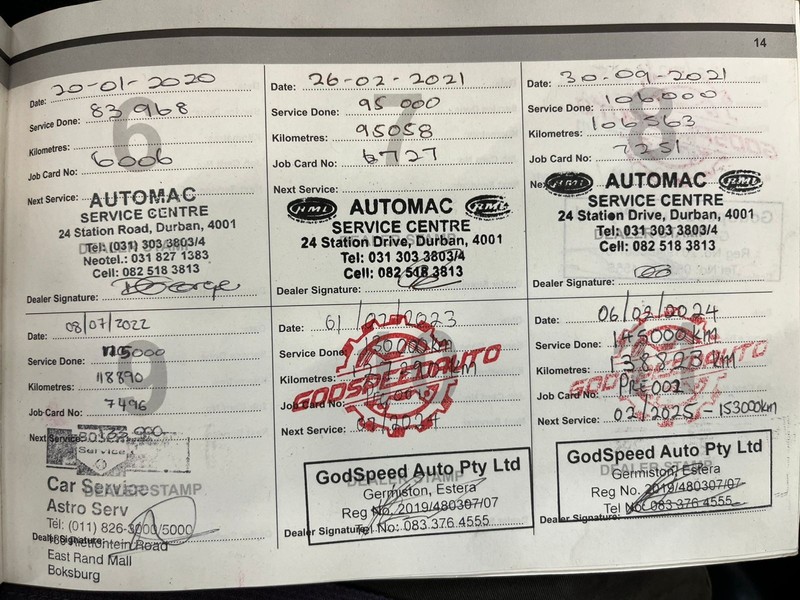 14
20-01-2020
Date:
Service Done: 83 968
6
Kilometres:
Job Card No: 6006
Next Service:
AUTOMAC
SERVICE CENTRE
24 Station Road, Durban, 4001
Tel: (031) 303 3803/4
Neotel.: 031 827 1383
Cell: 082 518 3813
DEALER STAMP
Dealer Signature:
Date: 26-02-2021
Service Done: 95 000
7
Kilometres: 95058
Job Card No: 6727
Next Service:
RMI
AUTOMAC
RMI
SERVICE CENTRE
24 Station Drive, Durban, 4001
Tel: 031 303 3803/4
Cell: 082 518 3813
DEALER STAMP
Dealer Signature:
Date: 30-09-2021
Service Done: 106.000
8
Kilometres: 106563
Job Card No: 7251
RMI
AUTOMAC
RMI
SERVICE CENTRE
24 Station Drive, Durban, 4001
Tel: 031 303 3803/4
Cell: 082 518 3813
DEALER STAMP
Dealer Signature:
Date: 08/07/2022
Service Done: 115000
9
Kilometres: 118890
Job Card No: 7496
Next Service:
Service
Car Service
DEALER STAMP
Astro Serv
Tel: (011) 826-3000/5000
Dealer Signature:
Rietfontein Road
East Rand Mall
Boksburg
Date:
Service Done:
Kilometres:
GODSPEEDAUTO
Job Card No:
Next Service:
GodSpeed Auto Pty Ltd
DEALER STAMP
Germiston, Estera
Reg No. 2019/480307/07
Tel No: 083 376 4555
Dealer Signature:
Date: 06/02/2024
Service Done: 145000km
Kilometres: 138823km
GODSPEEDAUTO
Job Card No: PRE002
Next Service: 02/2025 - 153000km
GodSpeed Auto Pty Ltd
DEALER STAMP
Germiston, Estera
Reg No. 2019/480307/07
Tel No: 083 376 4555
Dealer Signature: